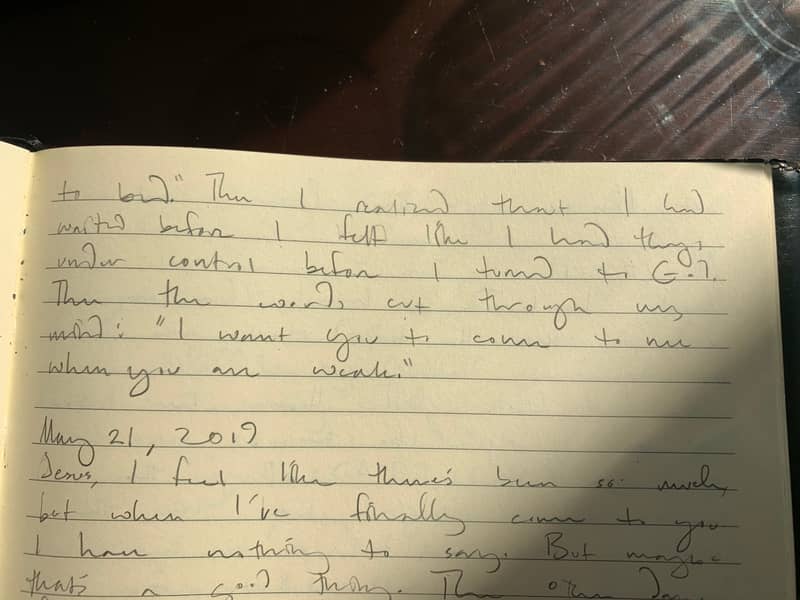 to bed." Then I realized that I had
waited before I felt like I had things
under control before I turned to God.
Then the words cut through my
mind: "I want you to come to me
when you are weak."
May 21, 2019
Jesus, I feel like there's been so much,
but when I've finally come to you
I have nothing to say. But maybe
that's a good thing. The other day